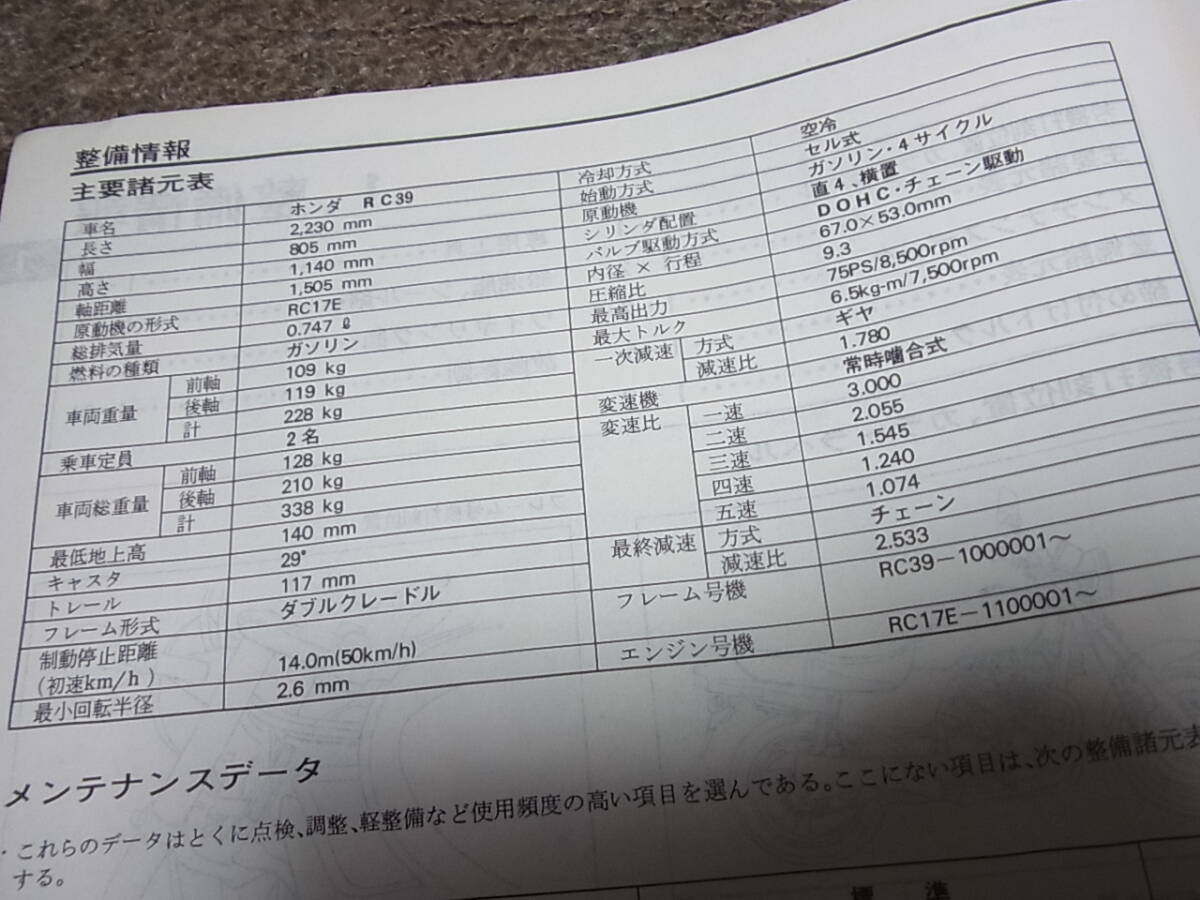 整備情報
主要諸元表
車名 ホンダ RC39
長さ 2,230 mm
幅 805 mm
高さ 1,140 mm
軸距離 1,505 mm
原動機の形式 RC17E
総排気量 0.747 ℓ
燃料の種類 ガソリン
車両重量 前軸 109 kg
後軸 119 kg
計 228 kg
乗車定員 2名
車両総重量 前軸 128 kg
後軸 210 kg
計 338 kg
最低地上高 140 mm
キャスタ 29°
トレール 117 mm
フレーム形式 ダブルクレードル
制動停止距離
(初速km/h) 14.0m(50km/h)
最小回転半径 2.6 mm
冷却方式 空冷
始動方式 セル式
原動機 ガソリン・4サイクル
シリンダ配置 直4、横置
バルブ駆動方式 DOHC・チェーン駆動
内径 × 行程 67.0×53.0mm
圧縮比 9.3
最高出力 75PS/8,500rpm
最大トルク 6.5kg-m/7,500rpm
一次減速 方式 ギヤ
減速比 1.780
変速機 常時噛合式
変速比 一速 3.000
二速 2.055
三速 1.545
四速 1.240
五速 1.074
最終減速 方式 チェーン
減速比 2.533
フレーム号機 RC39−1000001〜
エンジン号機 RC17E−1100001〜
メンテナンスデータ
・これらのデータはとくに点検、調整、軽整備など使用頻度の高い項目を選んである。ここにない項目は、次の整備諸元表
する。
標 準